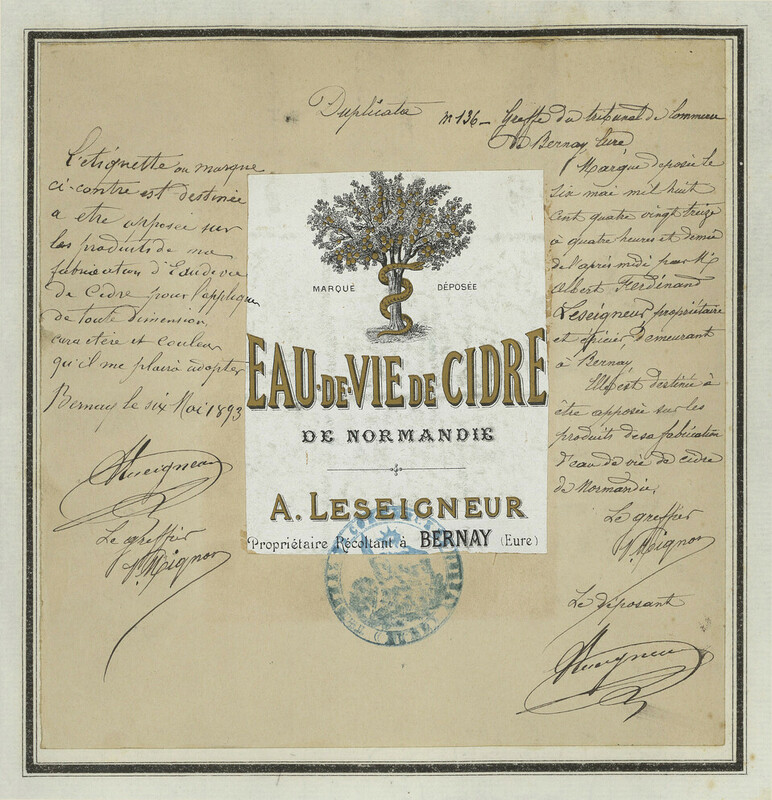 Duplicata
n 136 - Greffe du tribunal de Commerce
de Bernay Eure
L'etiquette ou marque
ci-contre est destinée
a etre apposée sur
les produits de ma
fabrication d'Eau de vie
de Cidre pour l'appliquer
de toute dimension,
caractère et couleur
qu'il me plaira adopter
Bernay le six Mai 1893
Leseigneur
Le greffier
Mignon
MARQUE DÉPOSÉE
EAU-DE-VIE DE CIDRE
DE NORMANDIE
A. LESEIGNEUR
Propriétaire Récoltant à BERNAY (Eure)
Marque déposée le
six mai mil huit
cent quatre vingt treize
à quatre heures et demie
de l'après midi par Mr
Albert Ferdinand
Leseigneur propriétaire
et épicier demeurant
à Bernay
Elle est destinée à
être apposée sur les
produits de sa fabrication
d'eau de vie de cidre
de Normandie,
Le greffier
Mignon
Le déposant
Leseigneur